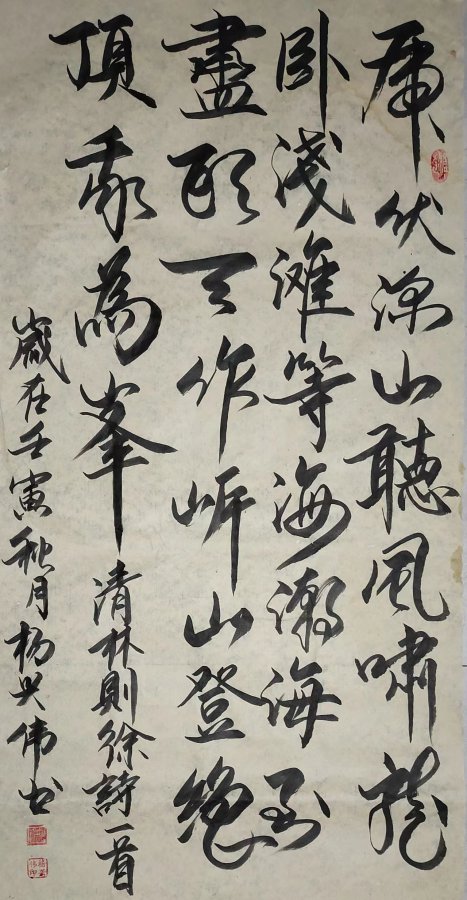 虎伏深山聽風嘯龍
卧淺滩等海潮海到
盡頭天作岸山登絕
頂我為峯 清林則徐詩一首
歲在壬寅秋月杨兴伟书